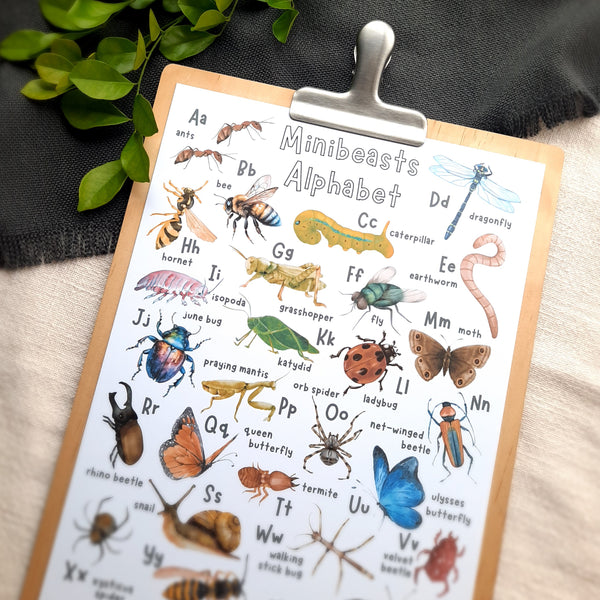 Minibeasts
Alphabet
Aa
ants
Bb
bee
Cc
caterpillar
Dd
dragonfly
Hh
hornet
Gg
grasshopper
Ff
fly
Ee
earthworm
Ii
isopoda
Jj
june bug
katydid
Kk
Ll
ladybug
Mm
moth
praying mantis
Pp
orb spider
Oo
net-winged
beetle
Nn
Rr
rhino beetle
Qq
queen
butterfly
termite
Tt
Uu
ulysses
butterfly
snail
Ss
Ww
walking
stick bug
Vv
velvet
beetle
Xx
Yy
spider